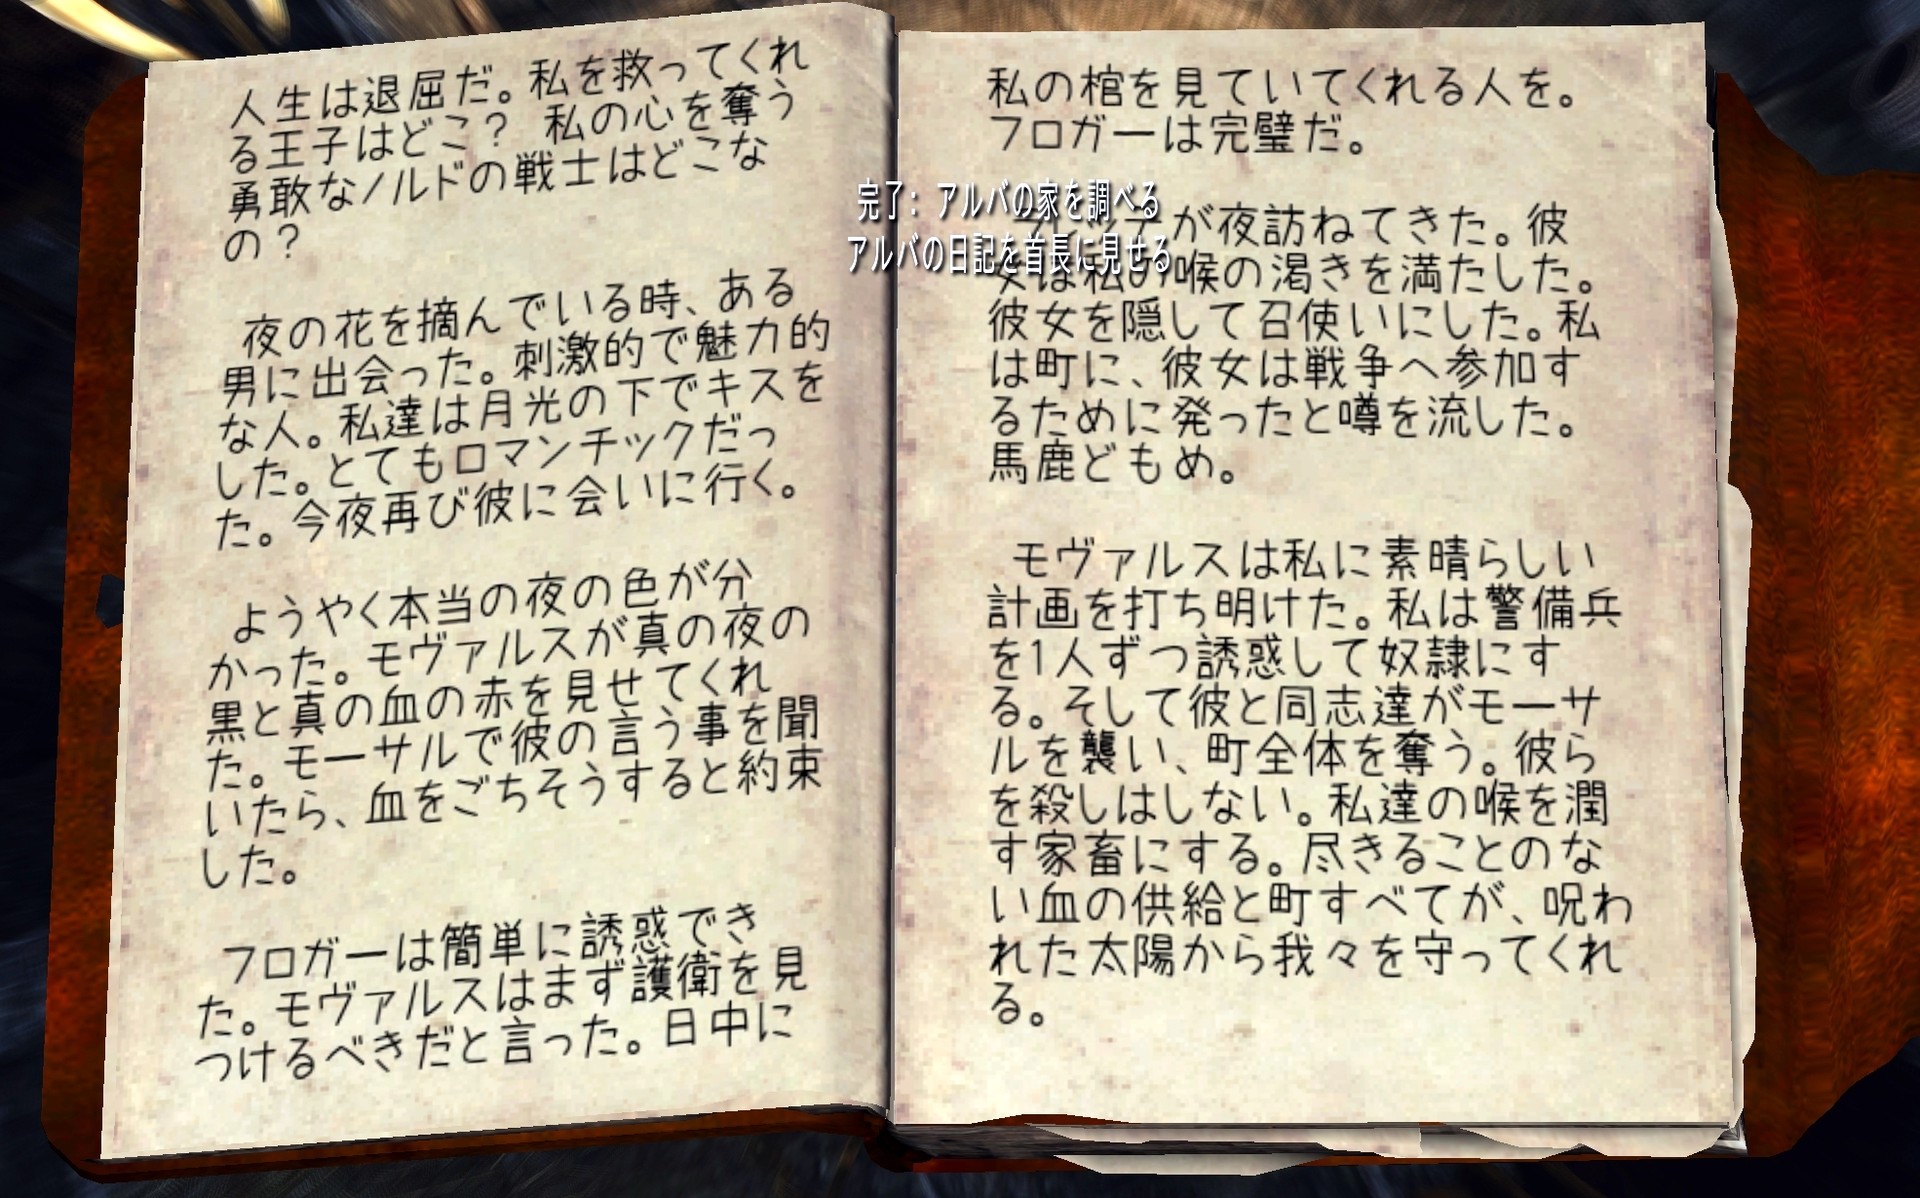 人生は退屈だ。私を救ってくれ
る王子はどこ？ 私の心を奪う
勇敢なノルドの戦士はどこな
の？
夜の花を摘んでいる時、ある
男に出会った。刺激的で魅力的
な人。私達は月光の下でキスを
した。とてもロマンチックだっ
た。今夜再び彼に会いに行く。
ようやく本当の夜の色が分
かった。モヴァルスが真の夜の
黒と真の血の赤を見せてくれ
た。モーサルで彼の言う事を聞
いたら、血をごちそうすると約束
した。
フロガーは簡単に誘惑でき
た。モヴァルスはまず護衛を見
つけるべきだと言った。日中に
私の棺を見ていてくれる人を。
フロガーは完璧だ。
完了: アルバの家を調べる
アルバの日記を首長に見せる
が夜訪ねてきた。彼
女は私の喉の渇きを満たした。
彼女を隠して召使いにした。私
は町に、彼女は戦争へ参加す
るために発ったと噂を流した。
馬鹿どもめ。
モヴァルスは私に素晴らしい
計画を打ち明けた。私は警備兵
を1人ずつ誘惑して奴隷にす
る。そして彼と同志達がモーサ
ルを襲い、町全体を奪う。彼ら
を殺しはしない。私達の喉を潤
す家畜にする。尽きることのな
い血の供給と町すべてが、呪わ
れた太陽から我々を守ってくれ
る。